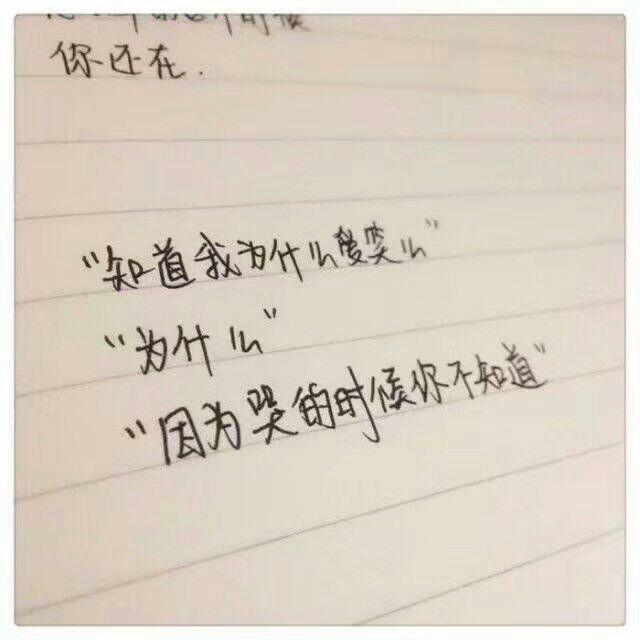 时候
你还在.
“知道我为什么爱笑么”
“为什么”
“因为哭的时候你不知道”